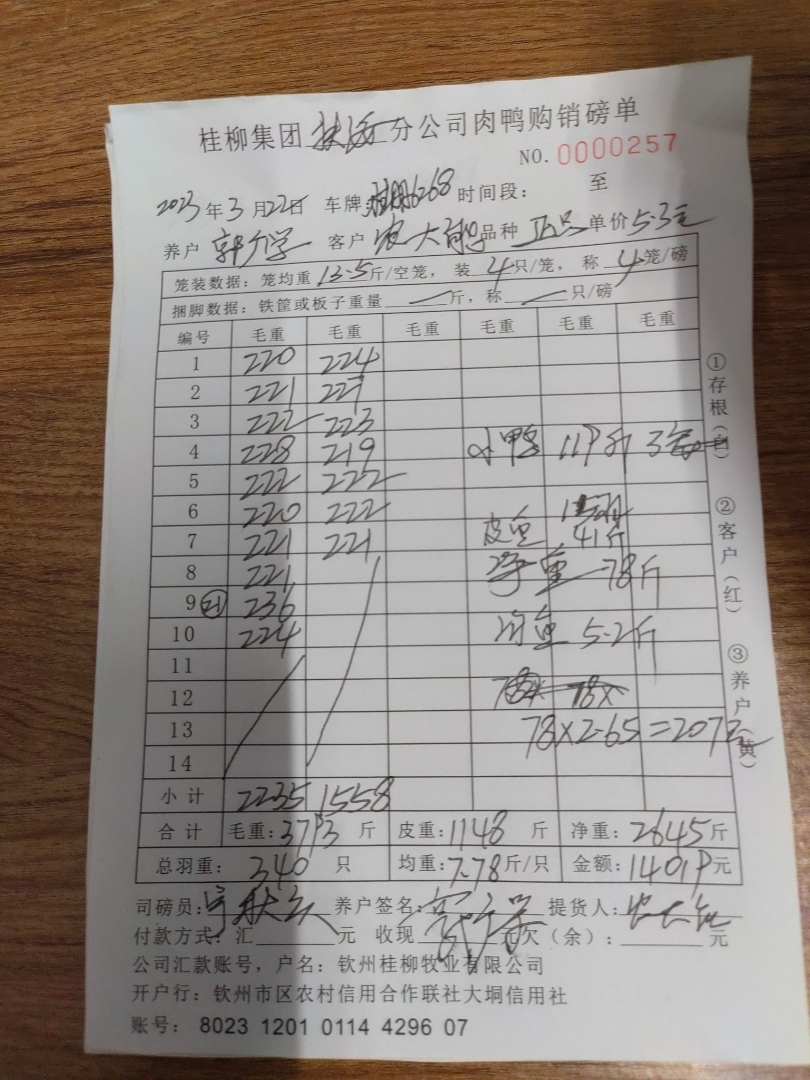 桂柳集团 分公司肉鸭购销磅单
NO. 0000257
2023年3月22日 车牌: 6268 时间段: 至
养户 郭 学 客户 农大 品种 单价5.3元
笼装数据: 笼均重13.5斤/空笼, 装4只/笼, 称4笼/磅
捆脚数据: 铁筐或板子重量 斤, 称 只/磅
编号 毛重 毛重 毛重 毛重 毛重 毛重
1 220 224
2 221 227
3 222 223
4 228 219 小鸭 119斤 3
5 222 222
6 220 222
7 221 221 皮重 41斤
8 221 净重 78斤
9 236 均重 5.2斤
10 224
11
12 78x
13 78×2.65=207元
14
小计 2235 1558
合计 毛重:3793斤 皮重:1148斤 净重:2645斤
总羽重: 340只 均重:7.78斤/只 金额:14019元
司磅员: 养户签名: 提货人:
付款方式: 汇 元 收现 元 欠(余): 元
公司汇款账号, 户名: 钦州桂柳牧业有限公司
开户行: 钦州市区农村信用合作联社大垌信用社
账号: 8023 1201 0114 4296 07
①存根(白)
②客户(红)
③养户(黄)